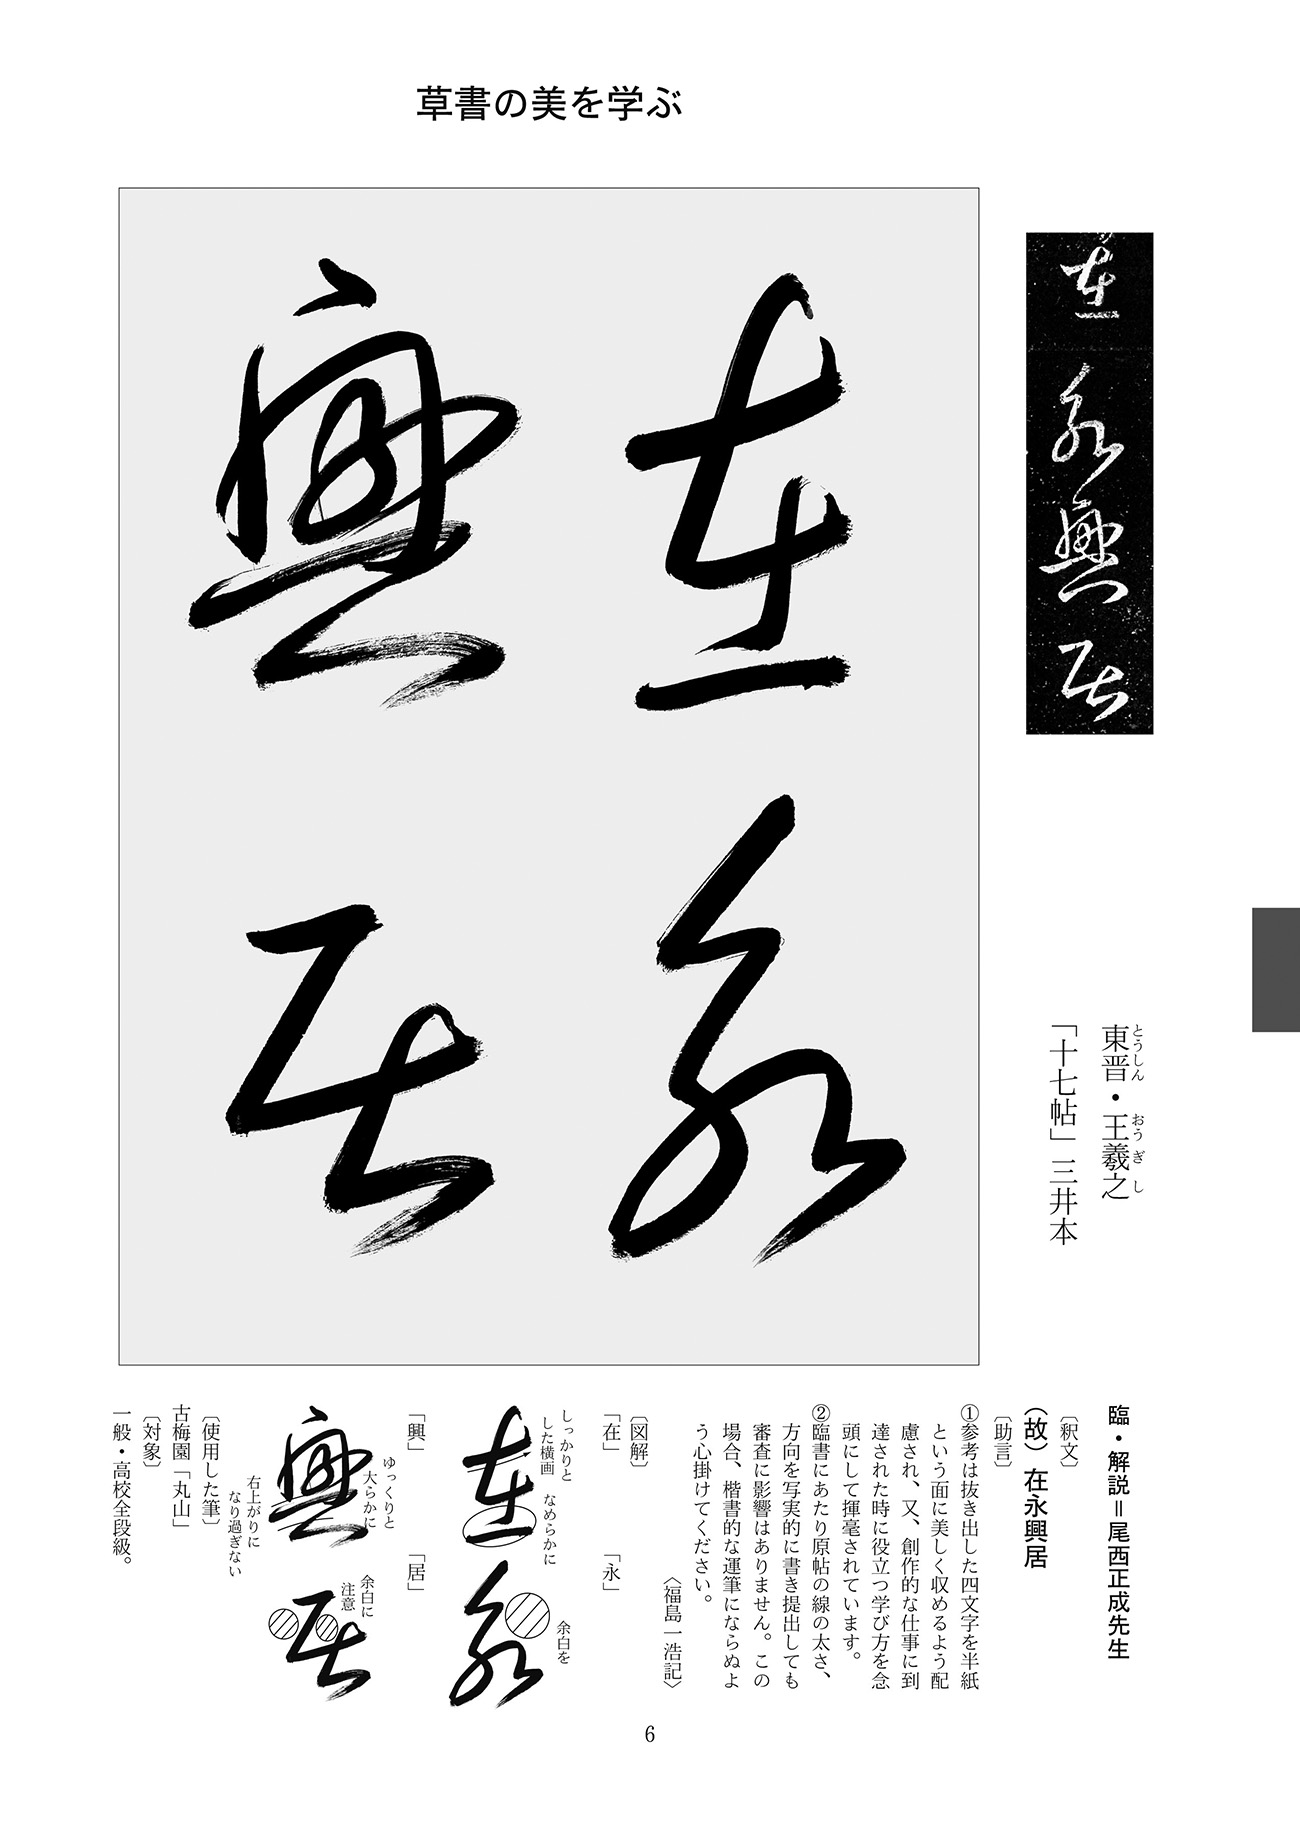 草書の美を学ぶ
在永
興居
在永興居
東晋・王羲之
とうしん おうぎし
「十七帖」三井本
臨・解説＝尾西正成先生
〔釈文〕
（故）在永興居
〔助言〕
①参考は抜き出した四文字を半紙
という面に美しく収めるよう配
慮され、又、創作的な仕事に到
達された時に役立つ学び方を念
頭にして揮毫されています。
②臨書にあたり原帖の線の太さ、
方向を写実的に書き提出しても
審査に影響はありません。この
場合、楷書的な運筆にならぬよ
う心掛けてください。
〈福島一浩記〉
〔図解〕
「在」
「永」
しっかりと
した横画
なめらかに
余白を
在永
「興」
「居」
ゆっくりと
大らかに
余白に
注意
興居
右上がりに
なり過ぎない
〔使用した筆〕
古梅園「丸山」
〔対象〕
一般・高校全段級。
6